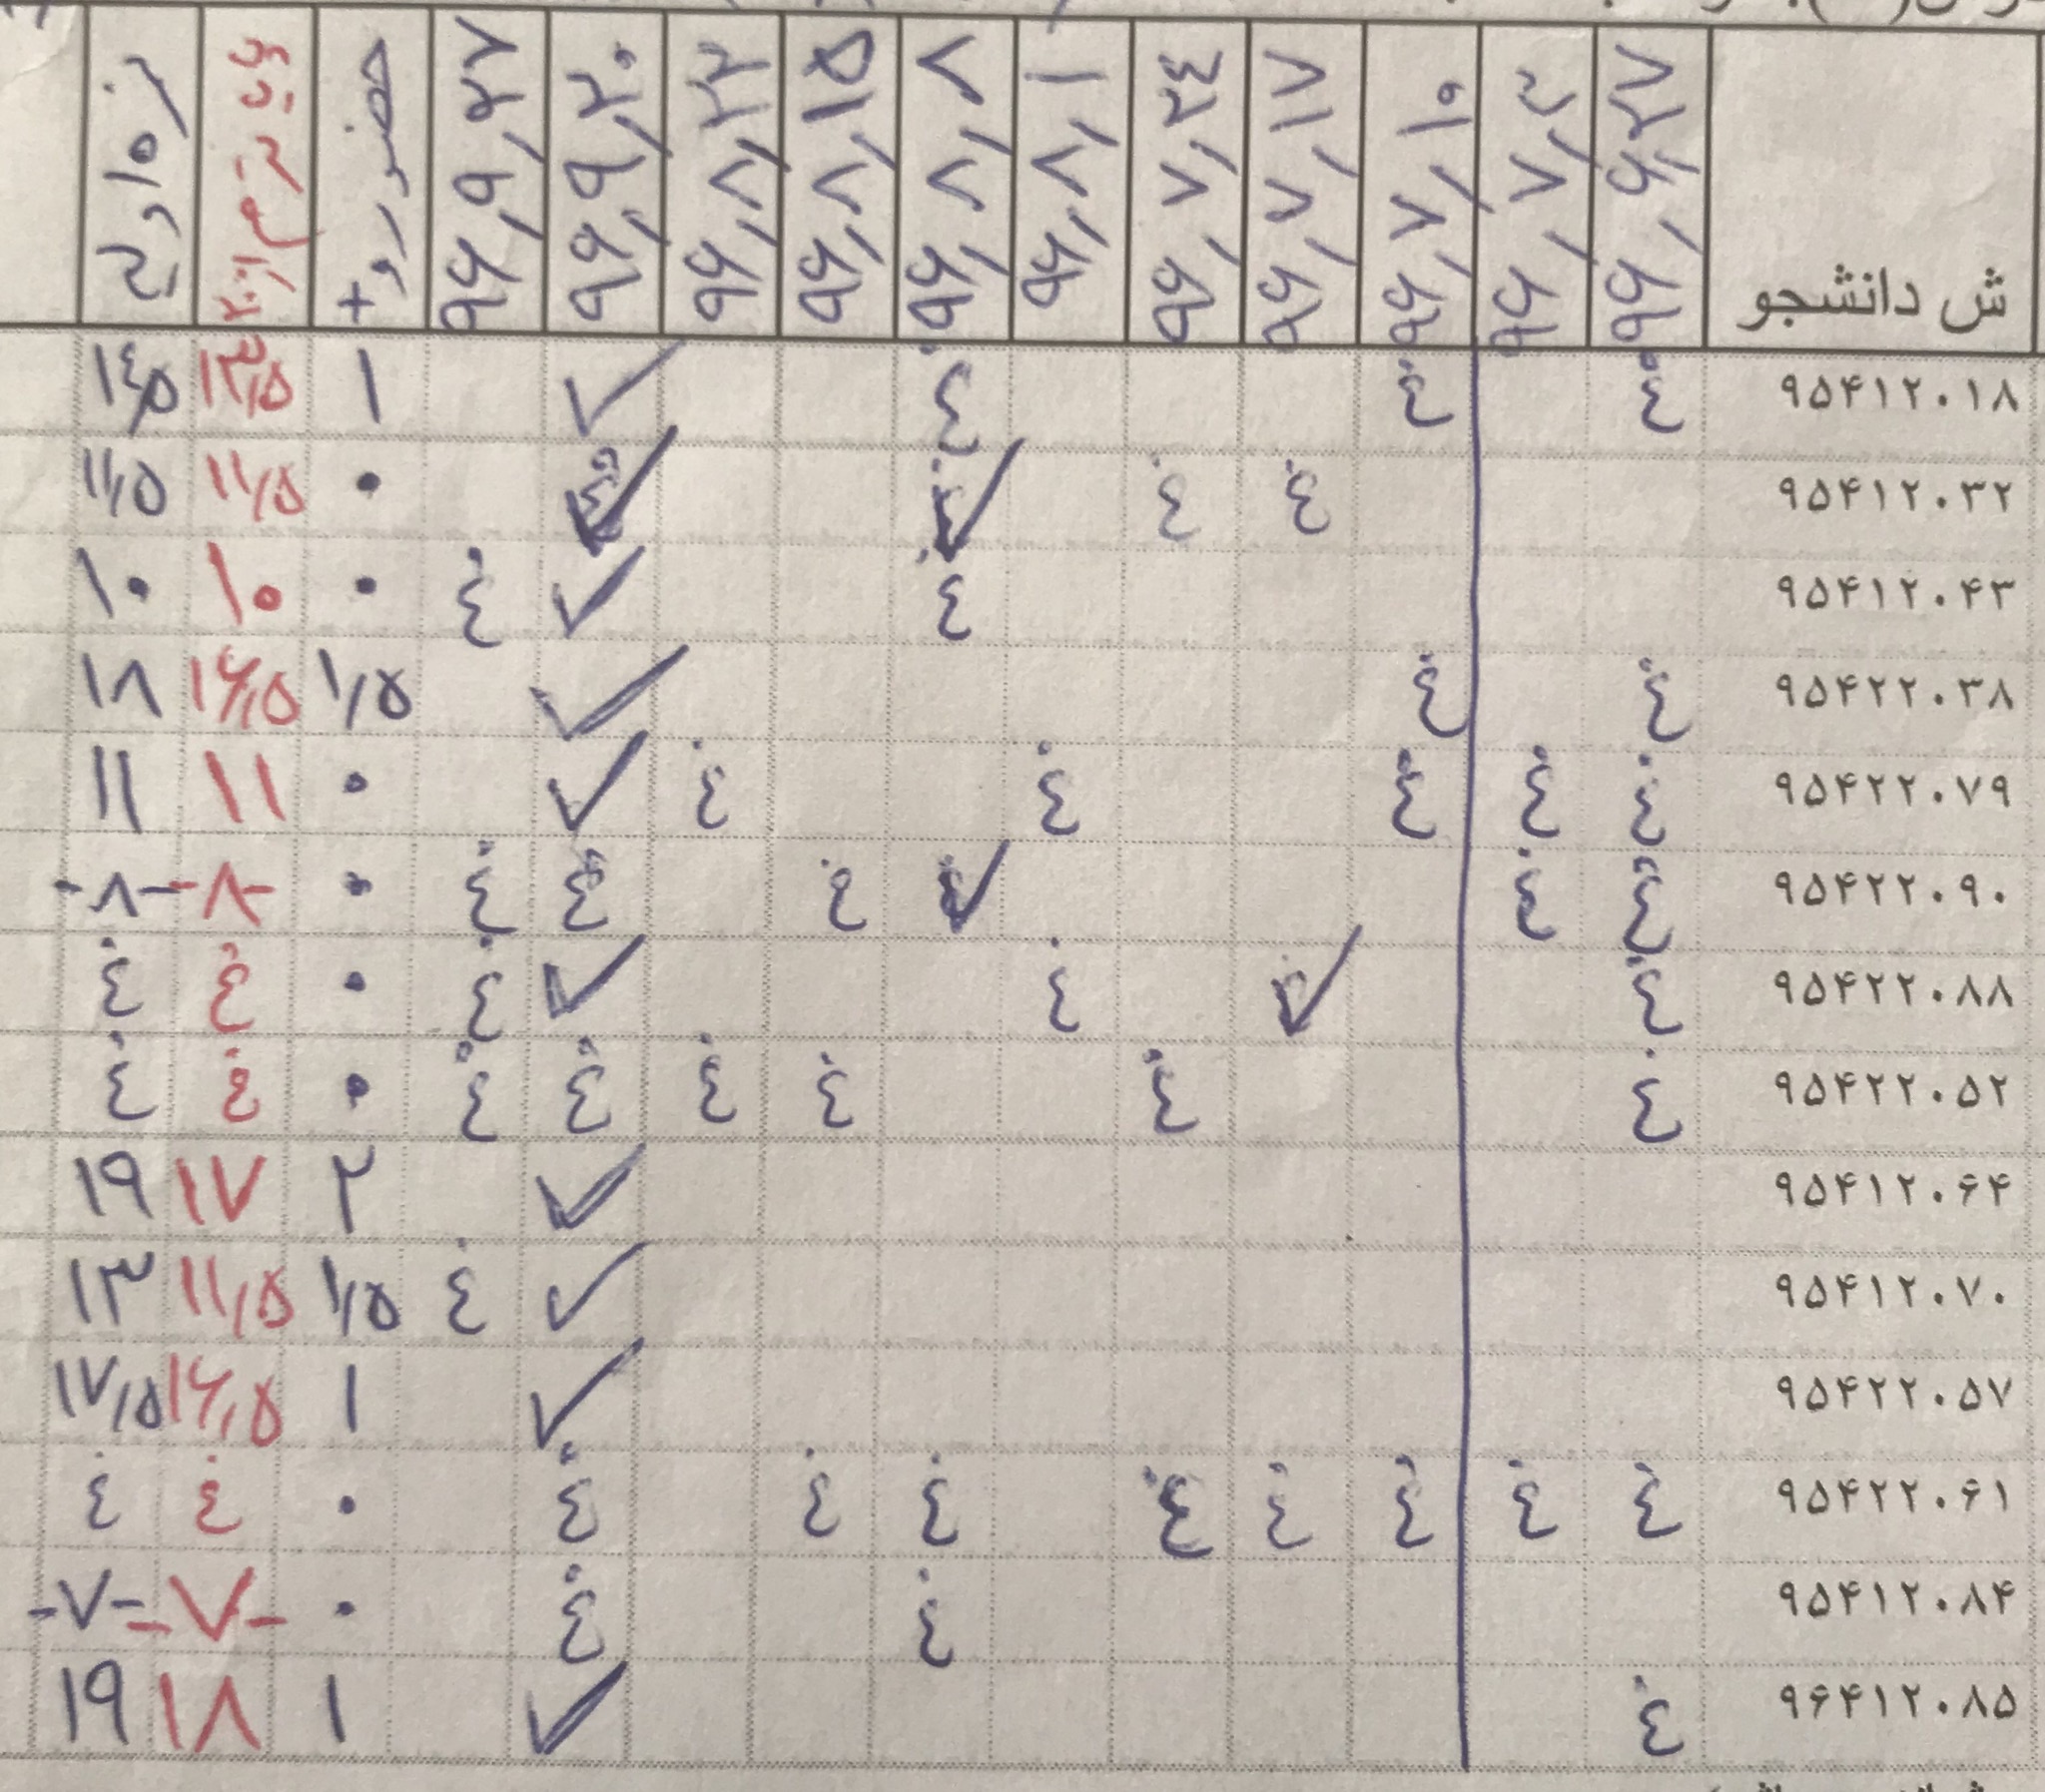 ش دانشجو ۹۶٫۶٫۲۷ ۹۶٫۷٫۳ ۹۶٫۷٫۱۰ ۹۶٫۷٫۱۷ ۹۶٫۷٫۲٤ ۹۶٫۸٫۱ ۹۶٫۸٫۸ ۹۶٫۸٫۱۵ ۹۶٫۸٫۲۲ ۹۶٫۹٫۲۰ ۹۶٫۹٫۲۷ حضور و + پایان ترم از ۲۰ نمره اولیه
۹۵۴۱۲۰۱۸ غ غ غ ✓ ۱ ۱۳٫۵ ۱٤٫۵
۹۵۴۱۲۰۳۲ غ غ ✓ ✓ ۰ ۱۱٫۵ ۱۱٫۵
۹۵۴۱۲۰۴۳ غ ✓ غ ۰ ۱۰ ۱۰
۹۵۴۲۲۰۳۸ غ غ ✓ ۱٫۵ ۱۶٫۵ ۱۸
۹۵۴۲۲۰۷۹ غ غ غ غ غ ✓ ۰ ۱۱ ۱۱
۹۵۴۲۲۰۹۰ غ غ ✓ غ غ غ ۰ -۸- -۸-
۹۵۴۲۲۰۸۸ غ ✓ غ ✓ غ ۰ غ غ
۹۵۴۲۲۰۵۲ غ غ غ غ غ غ ۰ غ غ
۹۵۴۱۲۰۶۴ ✓ ۲ ۱۷ ۱۹
۹۵۴۱۲۰۷۰ ✓ غ ۱٫۵ ۱۱٫۵ ۱۳
۹۵۴۲۲۰۵۷ ✓ ۱ ۱۶٫۵ ۱۷٫۵
۹۵۴۲۲۰۶۱ غ غ غ غ غ غ غ غ ۰ غ غ
۹۵۴۱۲۰۸۴ غ غ ۰ -۷- -۷-
۹۶۴۱۲۰۸۵ غ ✓ ۱ ۱۸ ۱۹